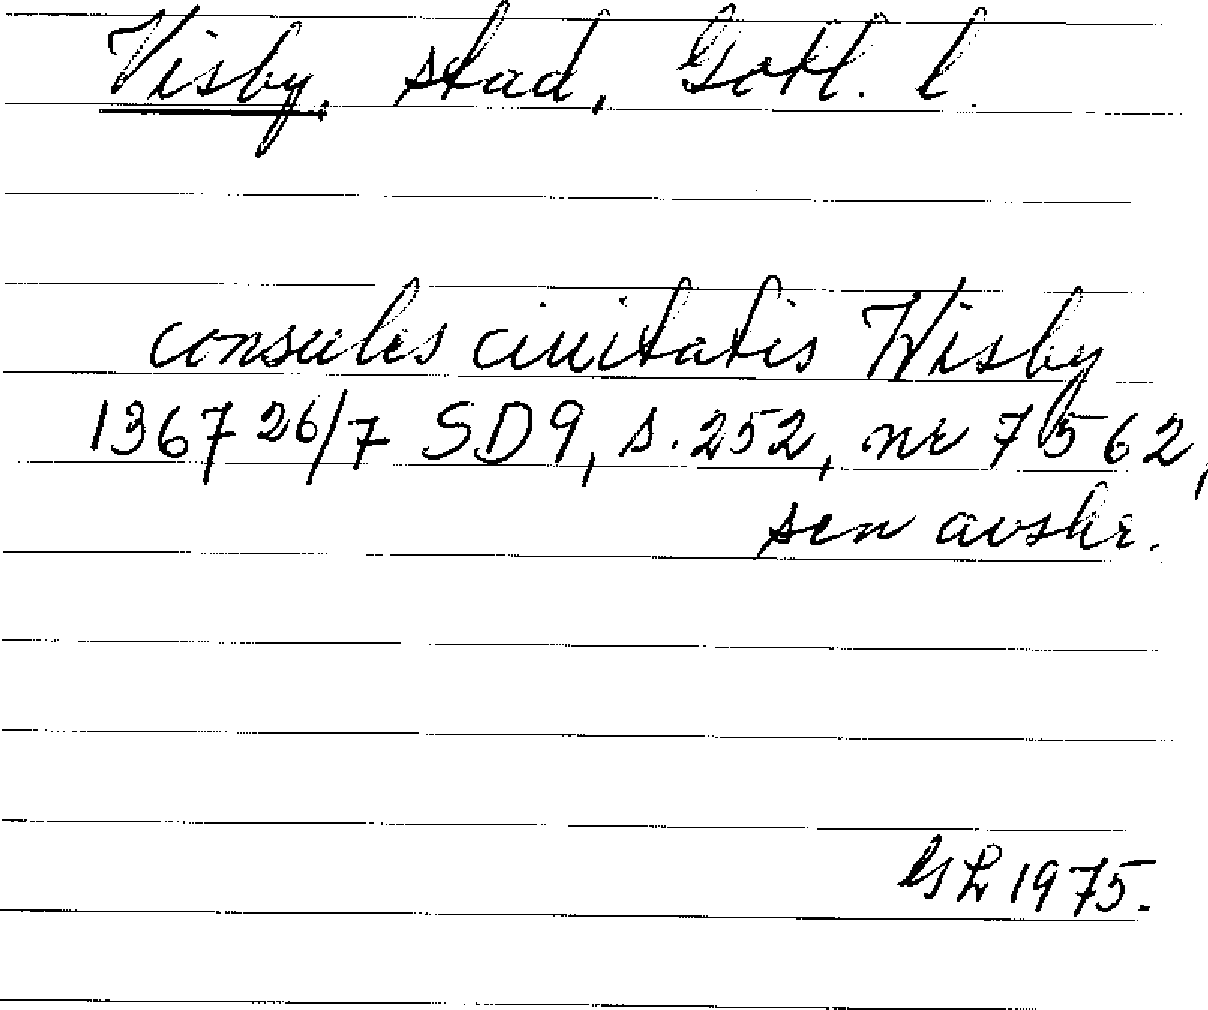 Visby, stad, Gotl. l.
consules ciuitatis Wisby
1367 26/7 SD9, s.252, nr 7562,
sen avskr.
GL 1975.